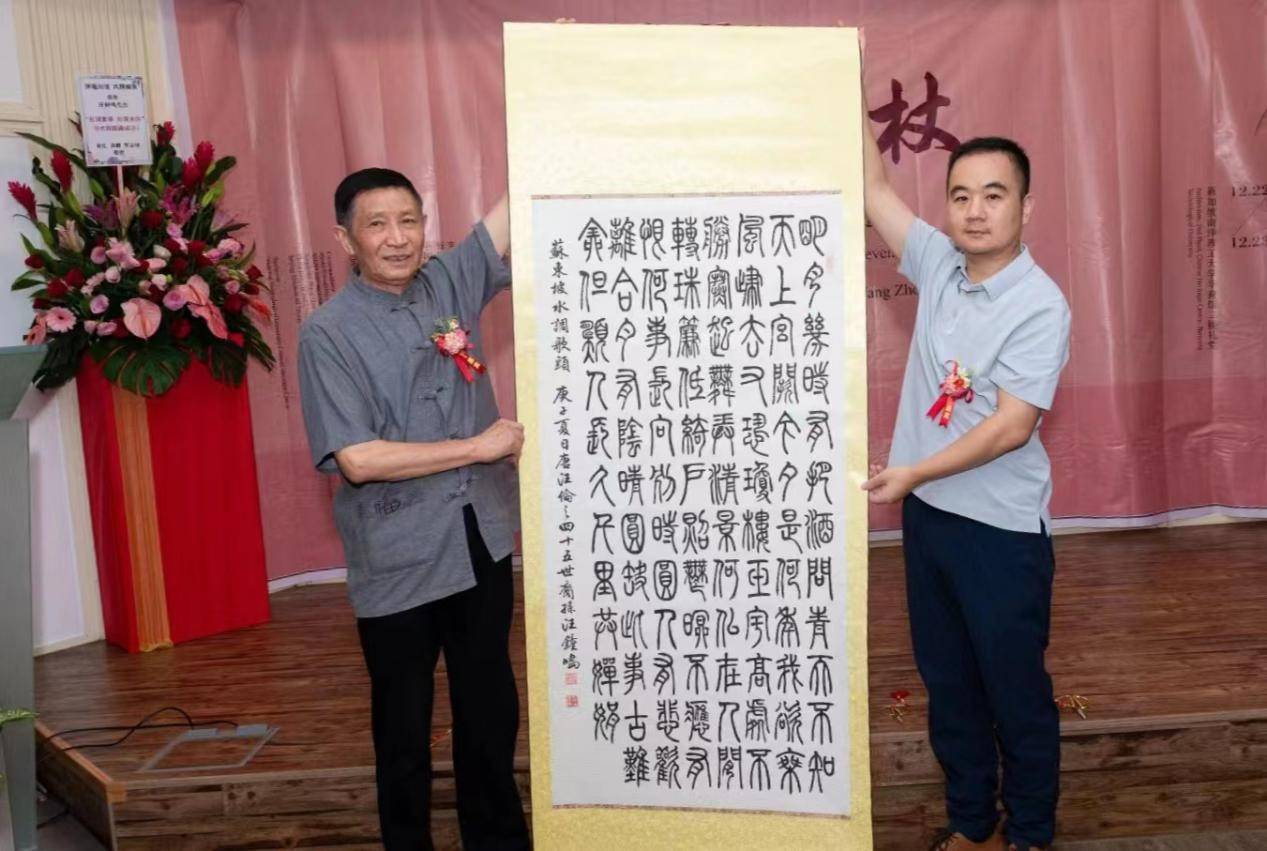 杖
12.22
12.23
明月幾時有把酒問青天不知
天上宮闕今夕是何年我欲乘
風歸去又恐瓊樓玉宇高處不
勝寒起舞弄清景何似在人間
轉珠簾低綺戶照無眠不應有
恨何事長向別時圓人有悲歡
離合月有陰晴圓缺此事古難
全但願人長久千里共嬋娟
蘇東坡水調歌頭 庚子夏日唐汪倫之四十五世裔孫汪鐘鳴